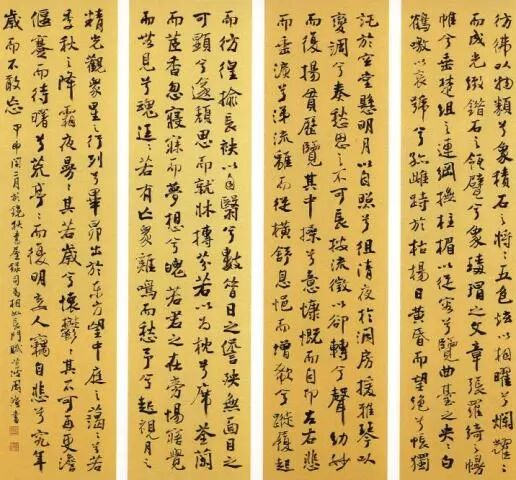 彷彿以物類兮象積石之將々五色炫以相曜兮爛耀々
而成光緻錯石之瓴甓兮象瑇瑁之文章張羅綺之幔
帷兮垂楚組之連綱撫柱楣以從容兮覽曲臺之央々白
鶴噭以哀號兮孤雌跱於枯楊日黃昏而望絕兮悵獨
託於空堂懸明月以自照兮徂清夜於洞房援雅琴以
變調兮奏愁思之不可長按流徵以卻轉兮聲幼妙
而復揚貫歷覽其中操兮意慷慨而自卬左右悲
而垂淚兮涕流離而從橫舒息悒而增欷兮蹝履起
而彷徨揄長袂以自翳兮數昔日之諐殃無面目之
可顯兮遂頹思而就牀摶芬若以為枕兮席荃蘭
而茝香忽寢寐而夢想兮魄若君之在旁惕寤覺
而無見兮魂迋々若有亡眾雞鳴而愁予兮起視月之
精光觀眾星之行列兮畢昴出於東方望中庭之藹々兮若
季秋之降霜夜曼々其若歲兮懷鬱々其不可再更澹
偃蹇而待曙兮荒亭々而復明妾人竊自悲兮究年
歲而不敢忘
甲申閏二月於書屋錄司馬相如長門賦周書